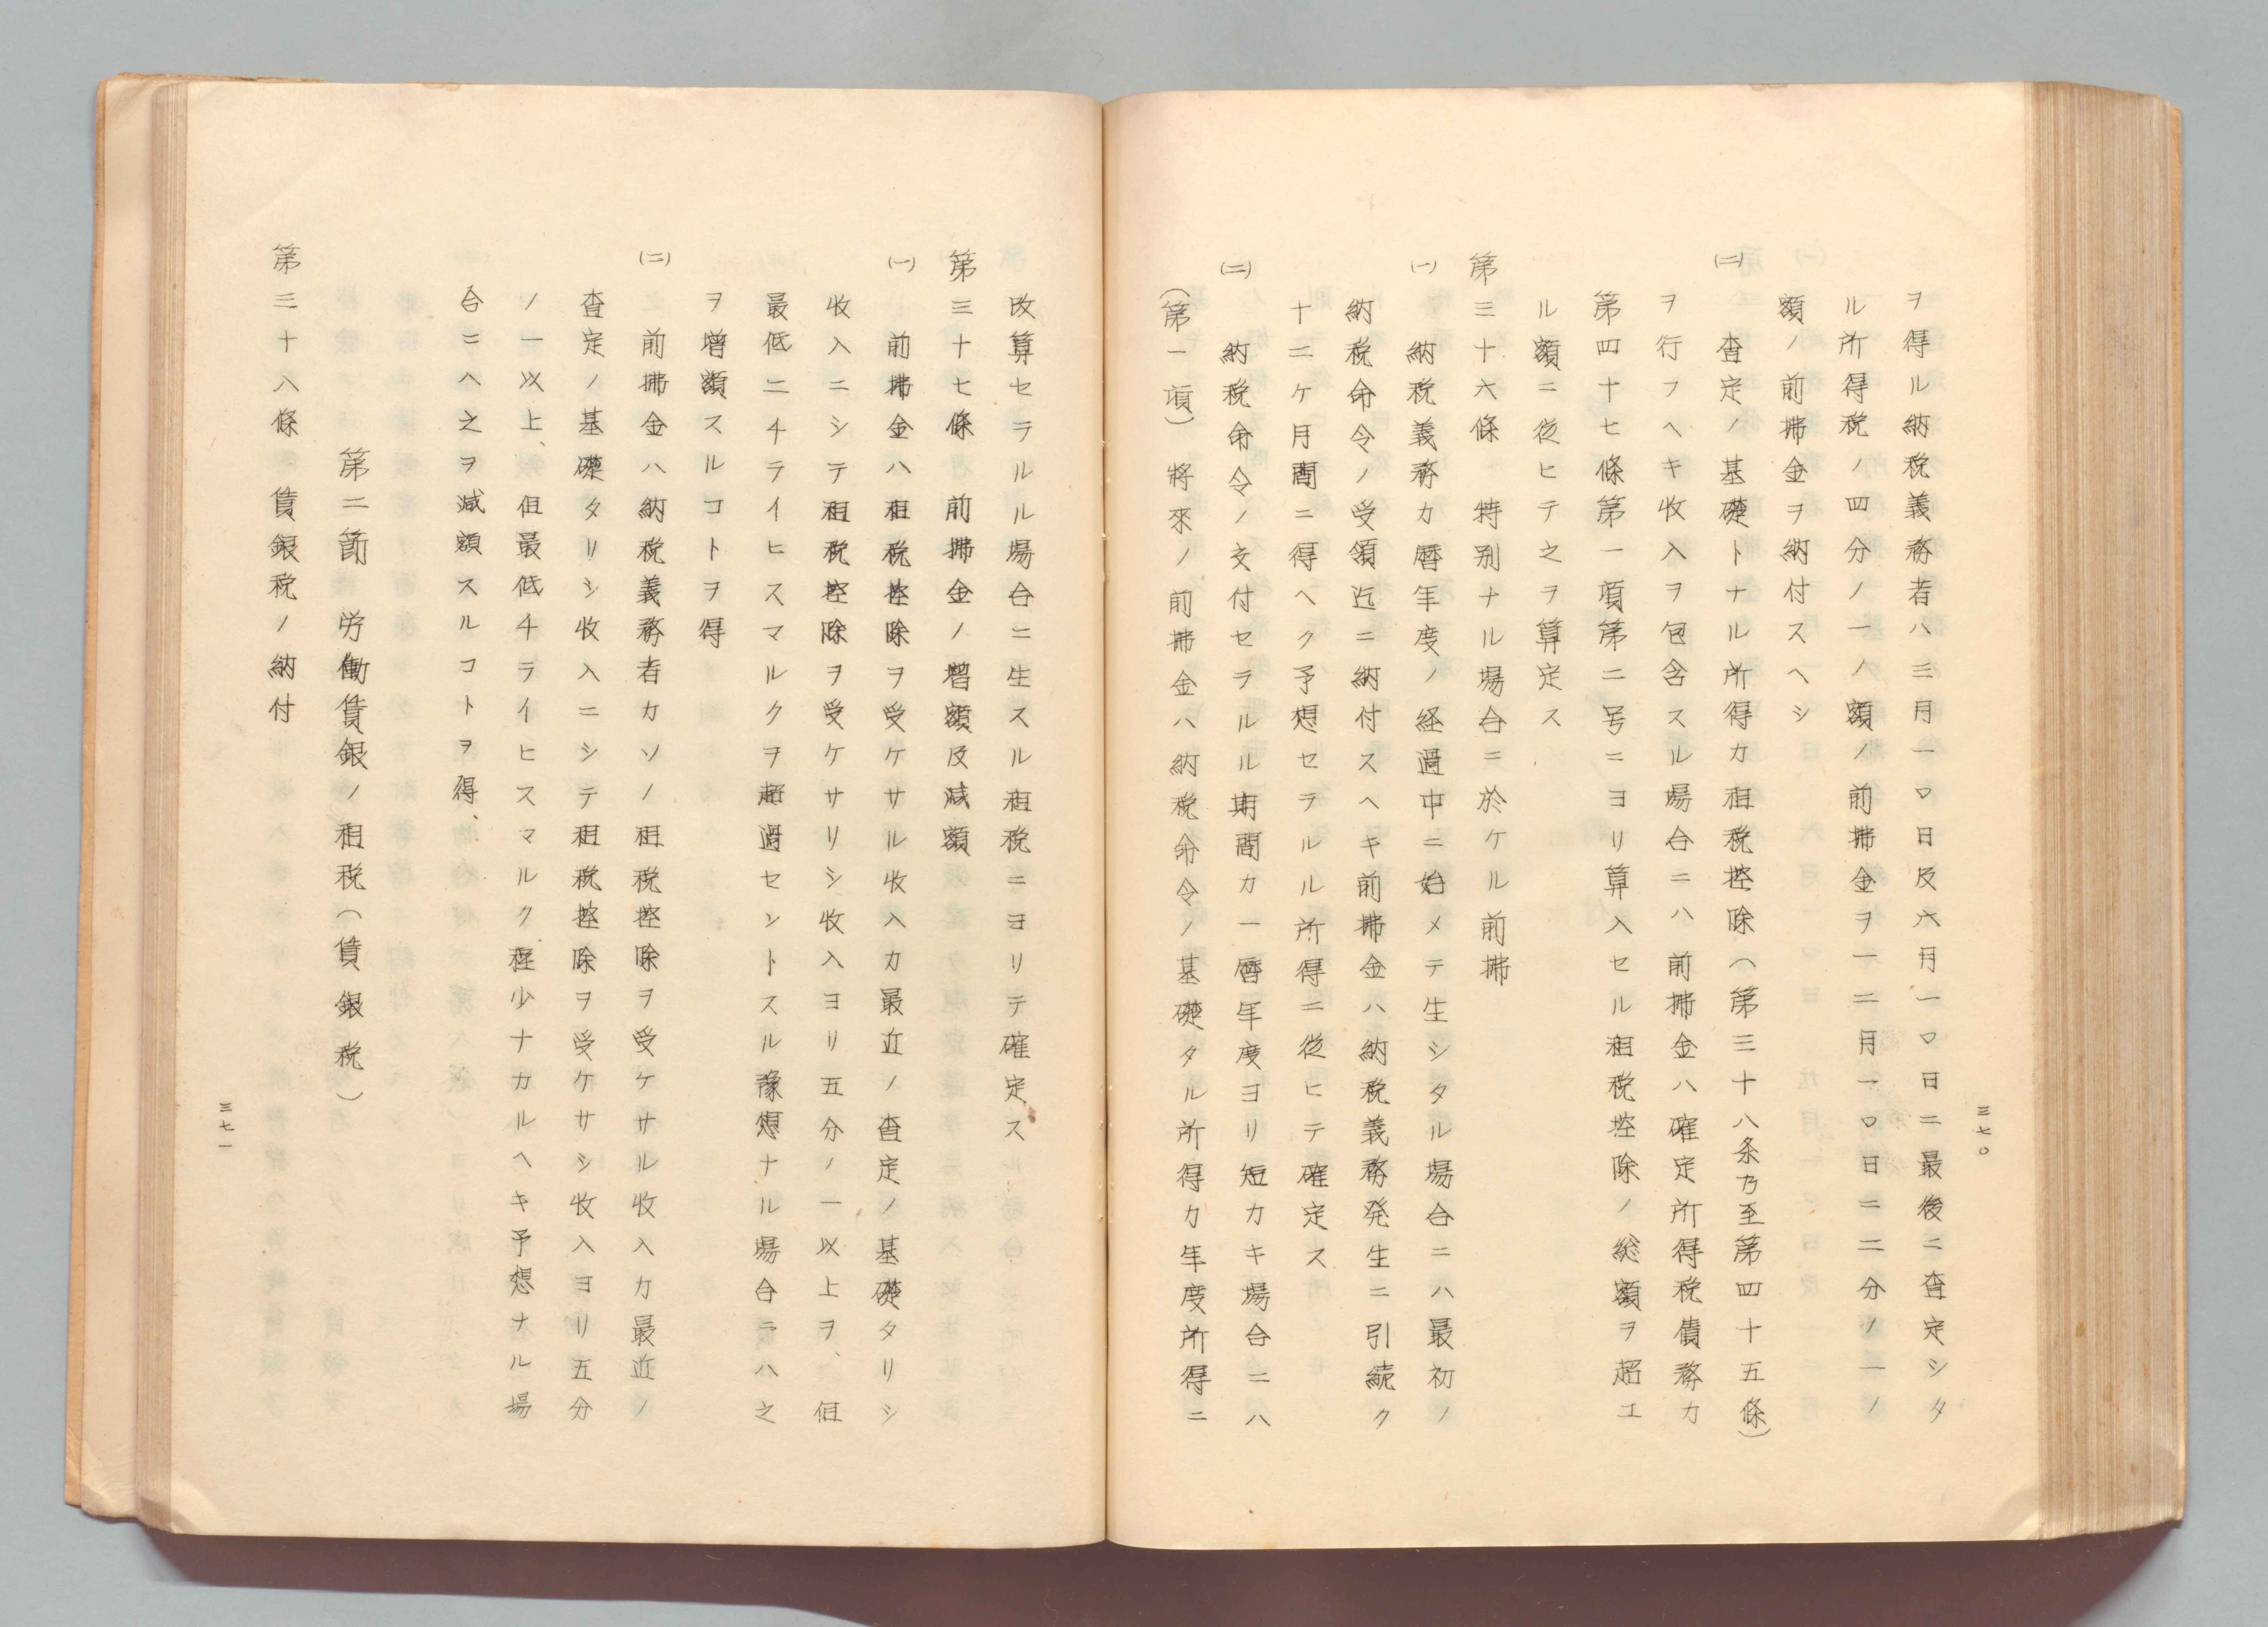 三七〇
ヲ得ル納税義務者ハ三月一〇日及六月一〇日ニ最後ニ査定シタ
ル所得税ノ四分ノ一ノ額ノ前拂金ヲ一二月一〇日ニ二分ノ一ノ
額ノ前拂金ヲ納付スヘシ
(二) 査定ノ基礎トナル所得カ租税控除(第三十八条乃至第四十五條)
ヲ行フヘキ收入ヲ包含スル場合ニハ前拂金ハ確定所得税債務カ
第四十七條第一項第二号ニヨリ算入セル租税控除ノ総額ヲ超エ
ル額ニ従ヒテ之ヲ算定ス
第三十六條 特別ナル場合ニ於ケル前拂
(一) 納税義務カ暦年度ノ経過中ニ始メテ生シタル場合ニハ最初ノ
納税命令ノ受領迄ニ納付スヘキ前拂金ハ納税義務発生ニ引続ク
十二ケ月間ニ得ヘク予想セラルル所得ニ従ヒテ確定ス
(二) 納税命令ノ交付セラルル期間カ一暦年度ヨリ短カキ場合ニハ
(第一項) 將來ノ前拂金ハ納税命令ノ基礎タル所得カ年度所得ニ
改算セラルル場合ニ生スル租税ニヨリテ確定ス
第三十七條 前拂金ノ増額及減額
(一) 前拂金ハ租税控除ヲ受ケサル收入カ最近ノ査定ノ基礎タリシ
收入ニシテ租税控除ヲ受ケサリシ收入ヨリ五分ノ一以上ヲ、但
最低二千ライヒスマルクヲ超過セントスル豫想ナル場合ラハ之
ヲ増額スルコトヲ得
(二) 前拂金ハ納税義務者カソノ租税控除ヲ受ケサル收入カ最近ノ
査定ノ基礎タリシ收入ニシテ租税控除ヲ受ケサシ收入ヨリ五分
ノ一以上、但最低千ライヒスマルク程少ナカルヘキ予想ナル場
合ニハ之ヲ減額スルコトヲ得、
第二節 労働賃銀ノ租税(賃銀税)
第三十八條 賃銀税ノ納付
三七一